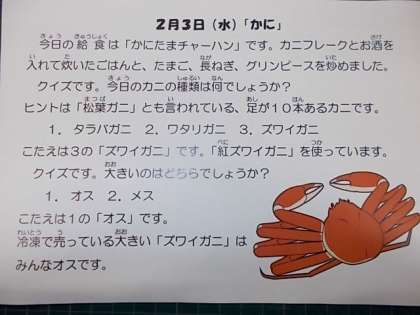 2月3日(水)「かに」
今日の給食は「かにたまチャーハン」です。カニフレークとお酒を
入れて炊いたごはんと、たまご、長ねぎ、グリンピースを炒めました。
クイズです。今日のカニの種類は何でしょうか?
ヒントは「松葉ガニ」とも言われている、足が10本あるカニです。
1. タラバガニ 2. ワタリガニ 3. ズワイガニ
こたえは3の「ズワイガニ」です。「紅ズワイガニ」を使っています。
クイズです。大きいのはどちらでしょうか?
1. オス 2. メス
こたえは1の「オス」です。
冷凍で売っている大きい「ズワイガニ」は
みんなオスです。